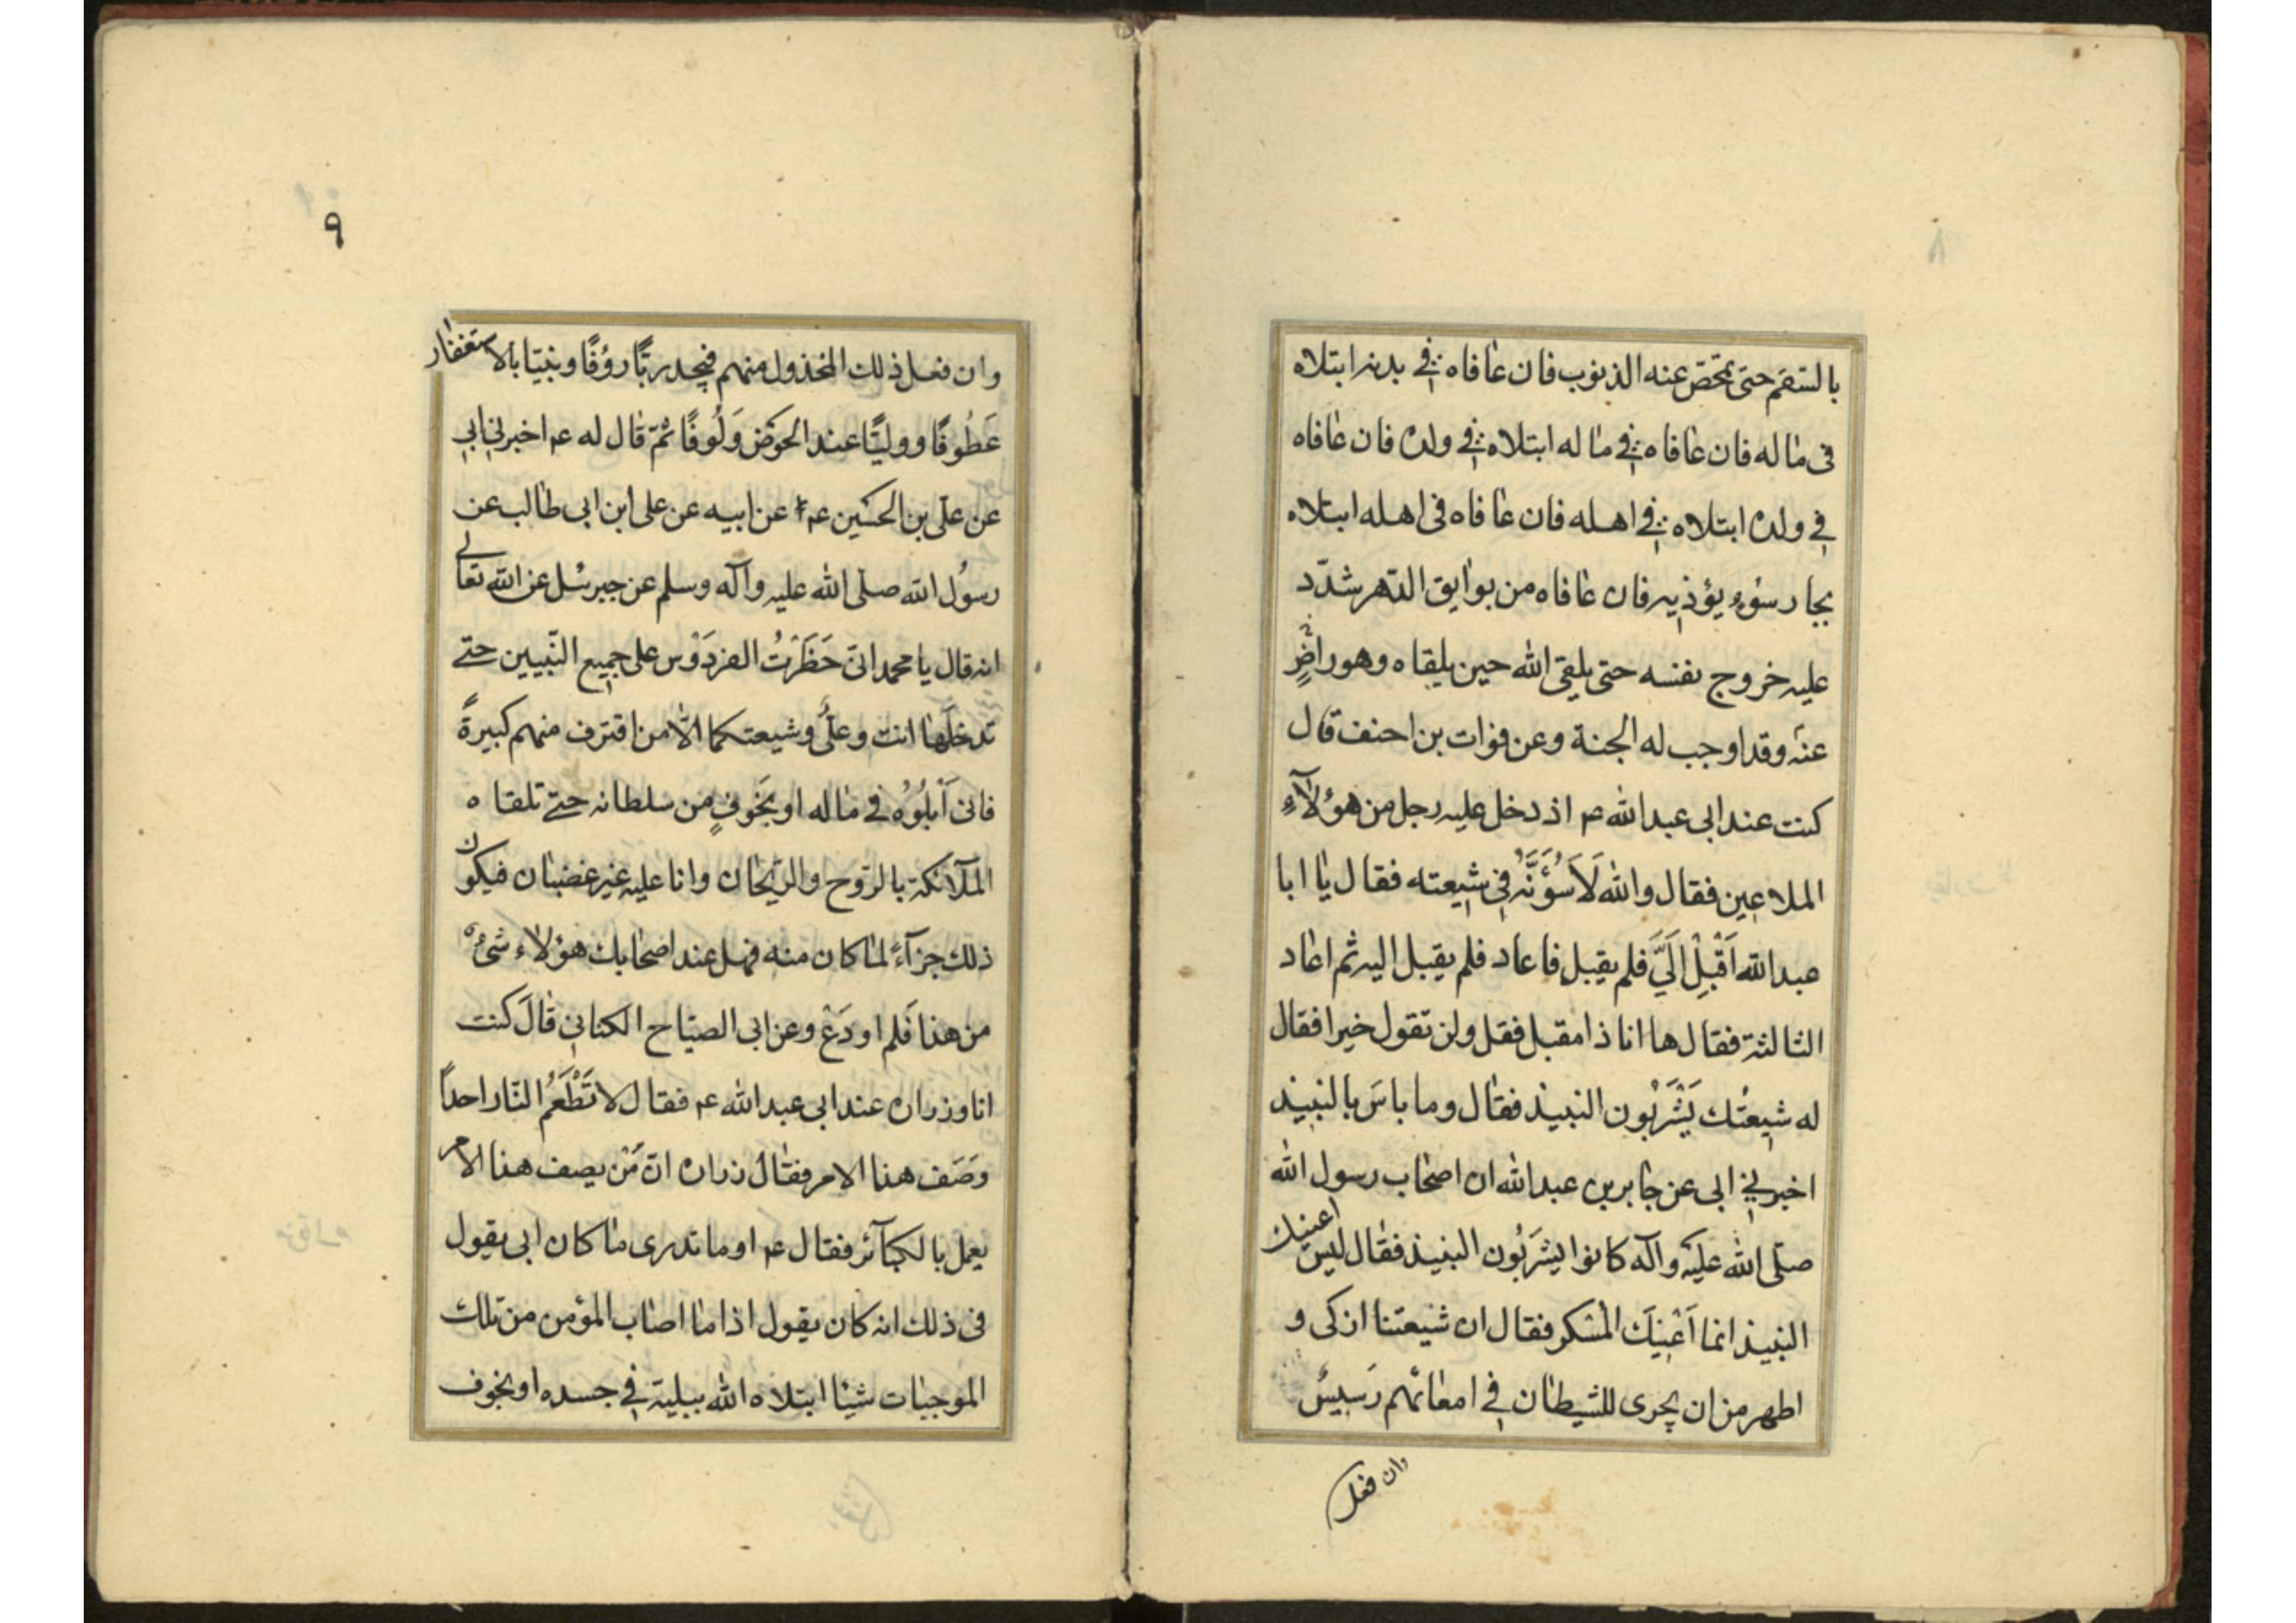 بالسقم حتى تمحص عنه الذنوب فان عافاه في بدنه ابتلاه
فى ماله فان عافاه في ماله ابتلاه في ولده فان عافاه
في ولده ابتلاه في اهله فان عافاه فى اهله ابتلاه
بجار سوء يؤذيه فان عافاه من بوايق الدهر شدّد
عليه خروج نفسه حتى يلقى الله حين يلقاه وهو راضٍ
عنه وقد اوجب له الجنة وعن فوات بن احنف قال
كنت عند ابى عبد الله ع اذ دخل عليه رجل من هؤلآءِ
الملاعين فقال والله لَاَسُؤَنَّهُ في شيعته فقال يا ابا
عبد الله اَقْبِلْ اِلَيَّ فلم يقبل فاعاد فلم يقبل اليه ثم اعاد
الثالثة فقال ها انا ذا مقبل فقل ولن تقول خيرا فقال
له شيعتُك يَشْرَبُون النبيذ فقال وما باسَ بالنبيذ
اخبرني ابى عن جابر بن عبد الله ان اصحاب رسول الله
صلّى الله عليه وآله كانوا يشرَبُون النبيذ فقال ليس اعينك
النبيذ انما اَعْينَك المُسْكر فقال ان شيعتنا ازكى و
اطهر من ان يجرى للشيطان في امعائهم رَسيسٌ
وان فعل
٩
وان فعل ذلك المخذول منهم فيجد ربًّا رؤفًا ونبيّا بالاستغفار
عَطُوفًا ووليًّا عند الحوض وَلُوفًا ثمّ قال له ع اخبرني ابي
عن علّى بن الحسين ع عن ابيه عن على ابن ابى طالب عن
رسُول الله صلّى الله عليه وآله وسلم عن جبرئيل عن الله تعالى
انه قال يا محمد انّى حَظَرْتُ الفردَوْس على جميع النّبيين حتى
تدخلَها انت وعلىٌّ وشيعتكما الّا من اقترف منهم كبيرةً
فانى اَبْلُوُهُ في ماله او بخَوفٍ من سلطانه حتى تلقاه
الملآئكة بالرّوح والرّيحان وانا عليه غير غضبان فيكون
ذلك جزآءً لما كان منه فهل عند اصحابك هؤلاء شىءٌ
من هذا فَلم او دَعْ وعن ابى الصبّاح الكنانى قالَ كنت
انا وزراره عند ابى عبد الله ع فقال لا تَطْعَمُ النّار احداً
وَصَف هذا الامر فقال زراره انّ مَنْ يصف هذا الامر
يعمل بالكبآئر فقال ع اوما تدرى ما كان ابى يقول
فى ذلك انه كان يقول اذا ما اصاب المؤمن من تلك
الموجبات شيئا ابتلاه الله ببلية في جسده او بخوف